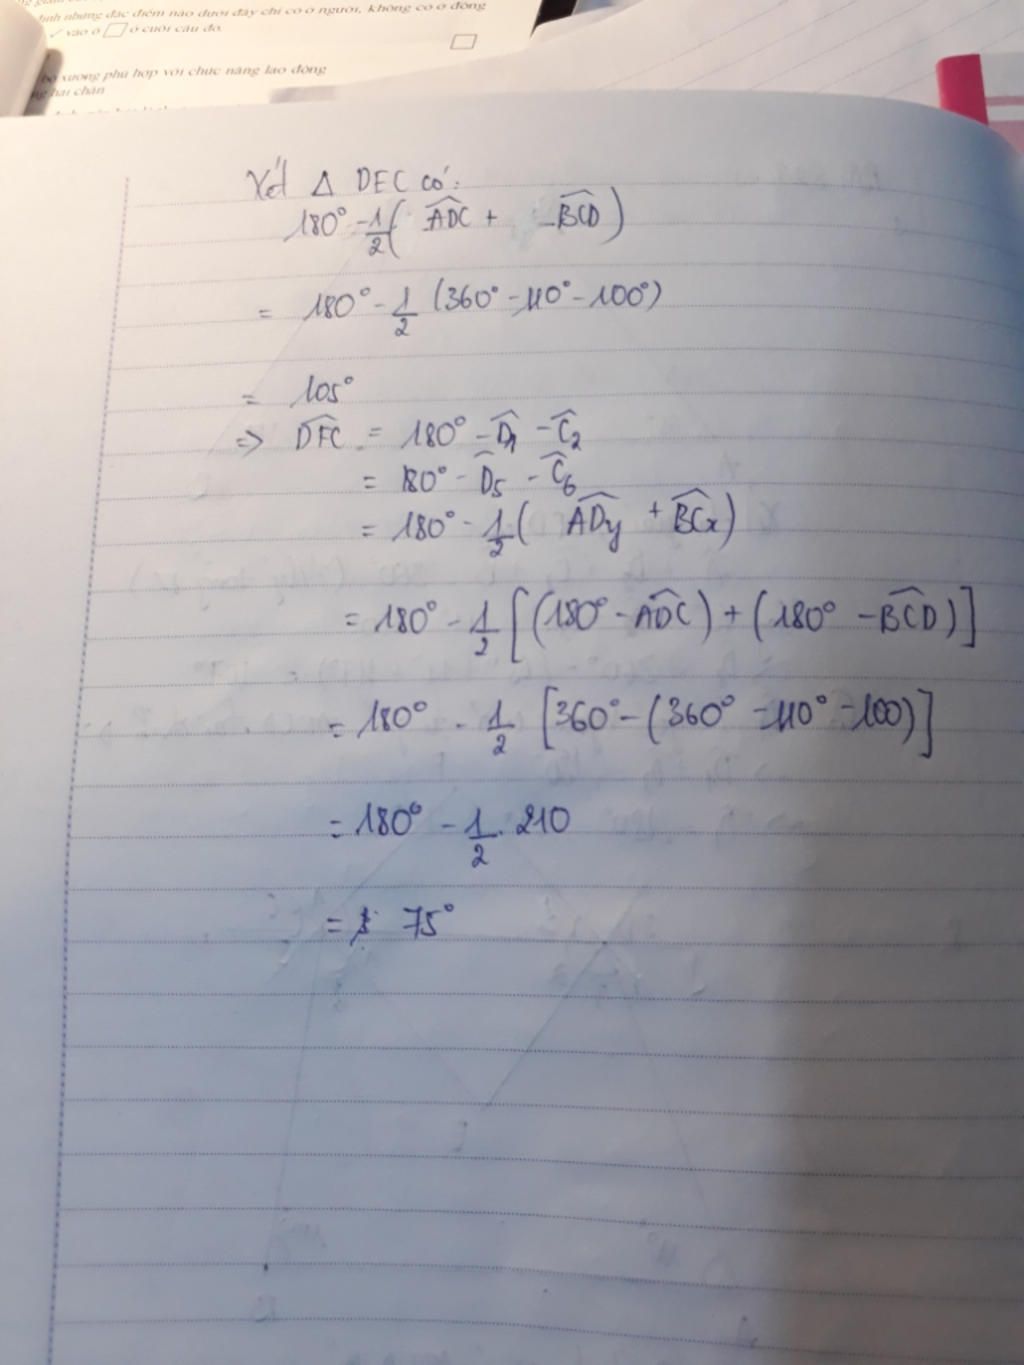 định những đặc điểm nào dưới đây chỉ có ở người, không có ở động
✓ vào ô □ ở cuối câu đó.
bộ xương phù hợp với chức năng lao động
ng hai chân
Xét Δ DEC có:
180° - 1/2 ( \widehat{ADC} + \widehat{BCD} )
= 180° - 1/2 (360° - 110° - 100°)
= 105°
=> \widehat{DFC} = 180° - \widehat{D}_1 - \widehat{C}_2
= 180° - \widehat{D}_5 - \widehat{C}_6
= 180° - 1/2 ( \widehat{ADy} + \widehat{BCx} )
= 180° - 1/2 [(180° - \widehat{ADC}) + (180° - \widehat{BCD})]
= 180° - 1/2 [360° - (360° - 110° - 100)]
= 180° - 1/2 . 210
= 75°